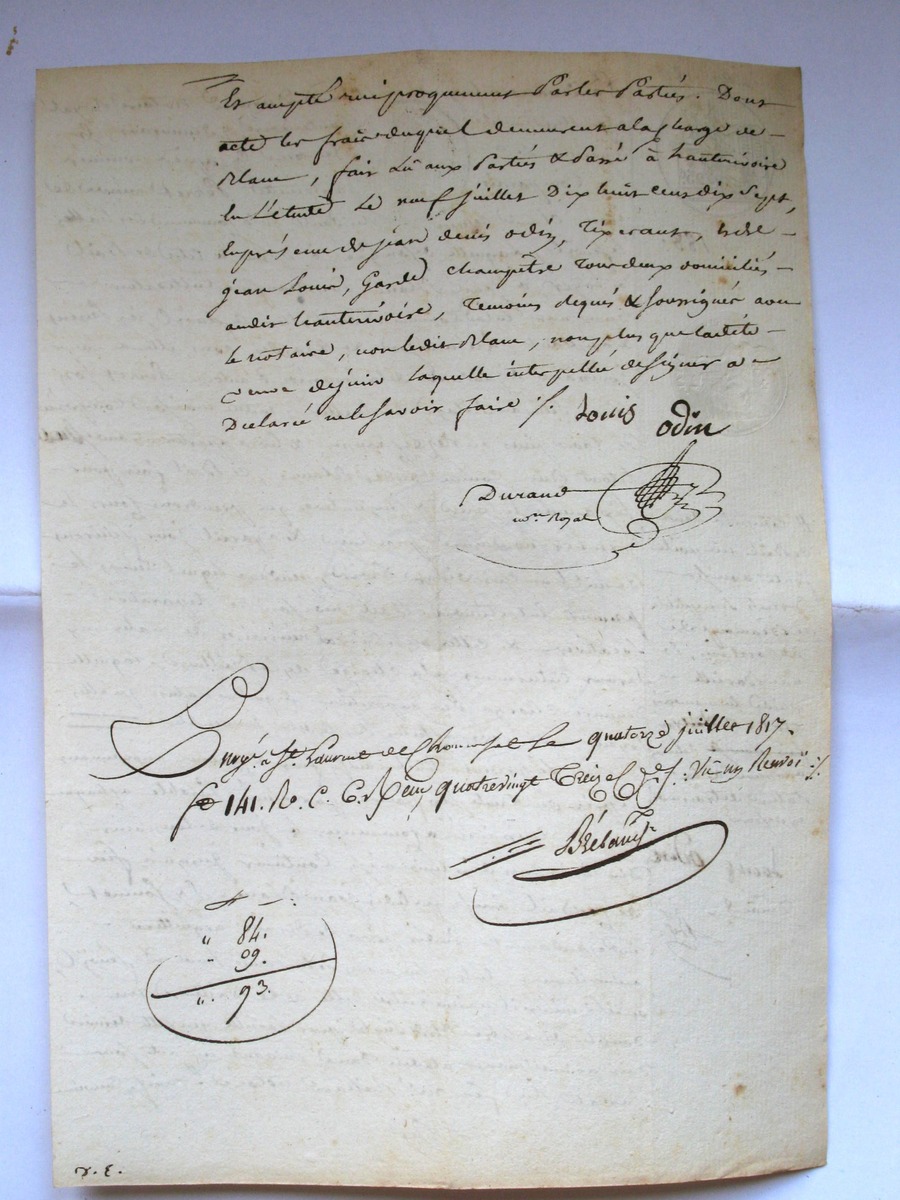 Et accepté reciproquement Par les Partiés. Dont
acte les frais duquel demeurent a la charge de
Blanc, fait Lû aux Partiés & Passé à hauterivoire
En L'étude Le neuf juillet Dix huit cent dix Sept,
En présence de jean denis odin, Tixerant, & de
jean Louis, Garde champêtre Tous deux domiciliés
audit hauterivoire, Temoins requis & soussignés avec
le notaire, non ledit Blanc, non plus que ladite
veuve laquelle interpellée de Signer a
Declaré ne le Savoir faire ./.
Louis odin
Durand
Royal
Enrgé. à St. Laurent de Chamousset Le quatorze juillet 1817.
fo 141. Ro. C. 6. Reçu quatrevingt Treize C. Vu un Renvoi ./.
" 84.
" 09.
" 93.
V. E.